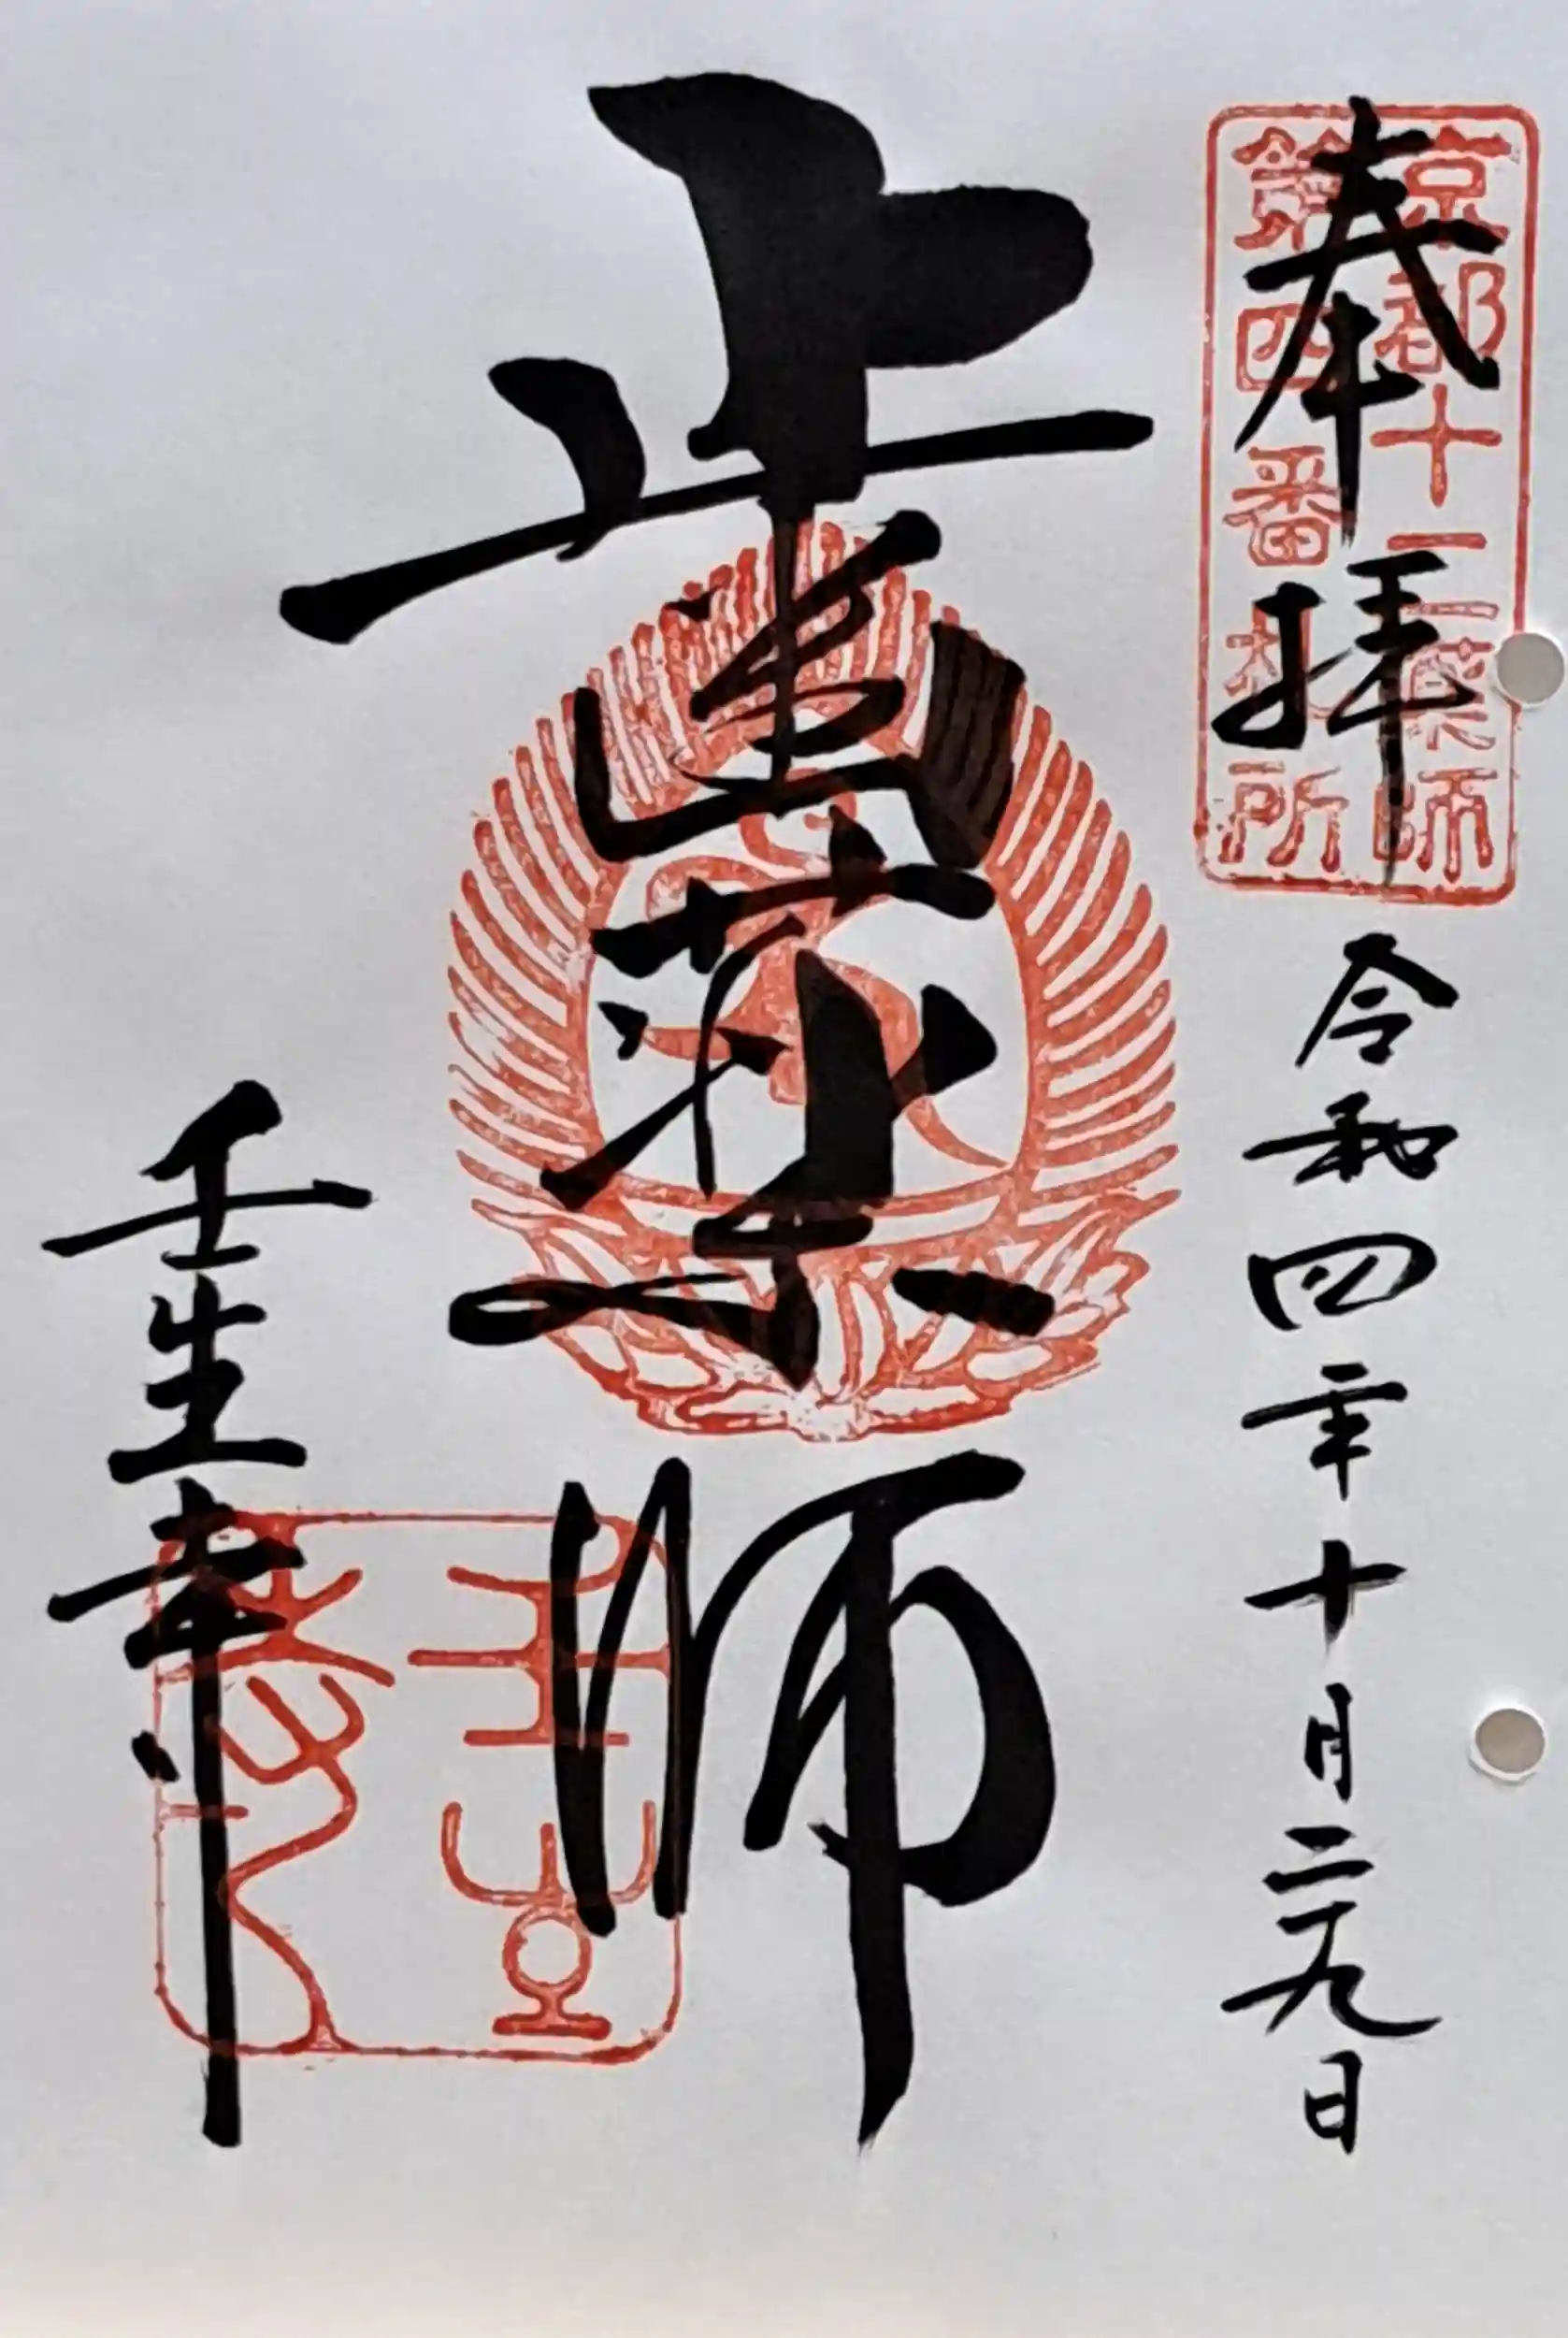 京都十二薬師
第四番札所
奉拝 令和四年十月二十九日
歯薬師
壬生寺